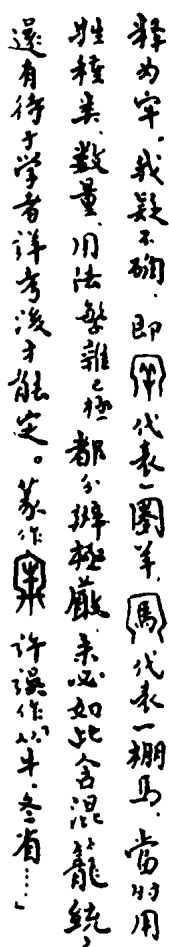 釋为牢。我疑不确、即代表一圈羊、代表一棚马、當时用
牲種类、数量、用法繁雜之極都分辨極嚴、未必如此含混籠統、
還有待于学者详考後才能定。篆作許误作从牛、冬省……」